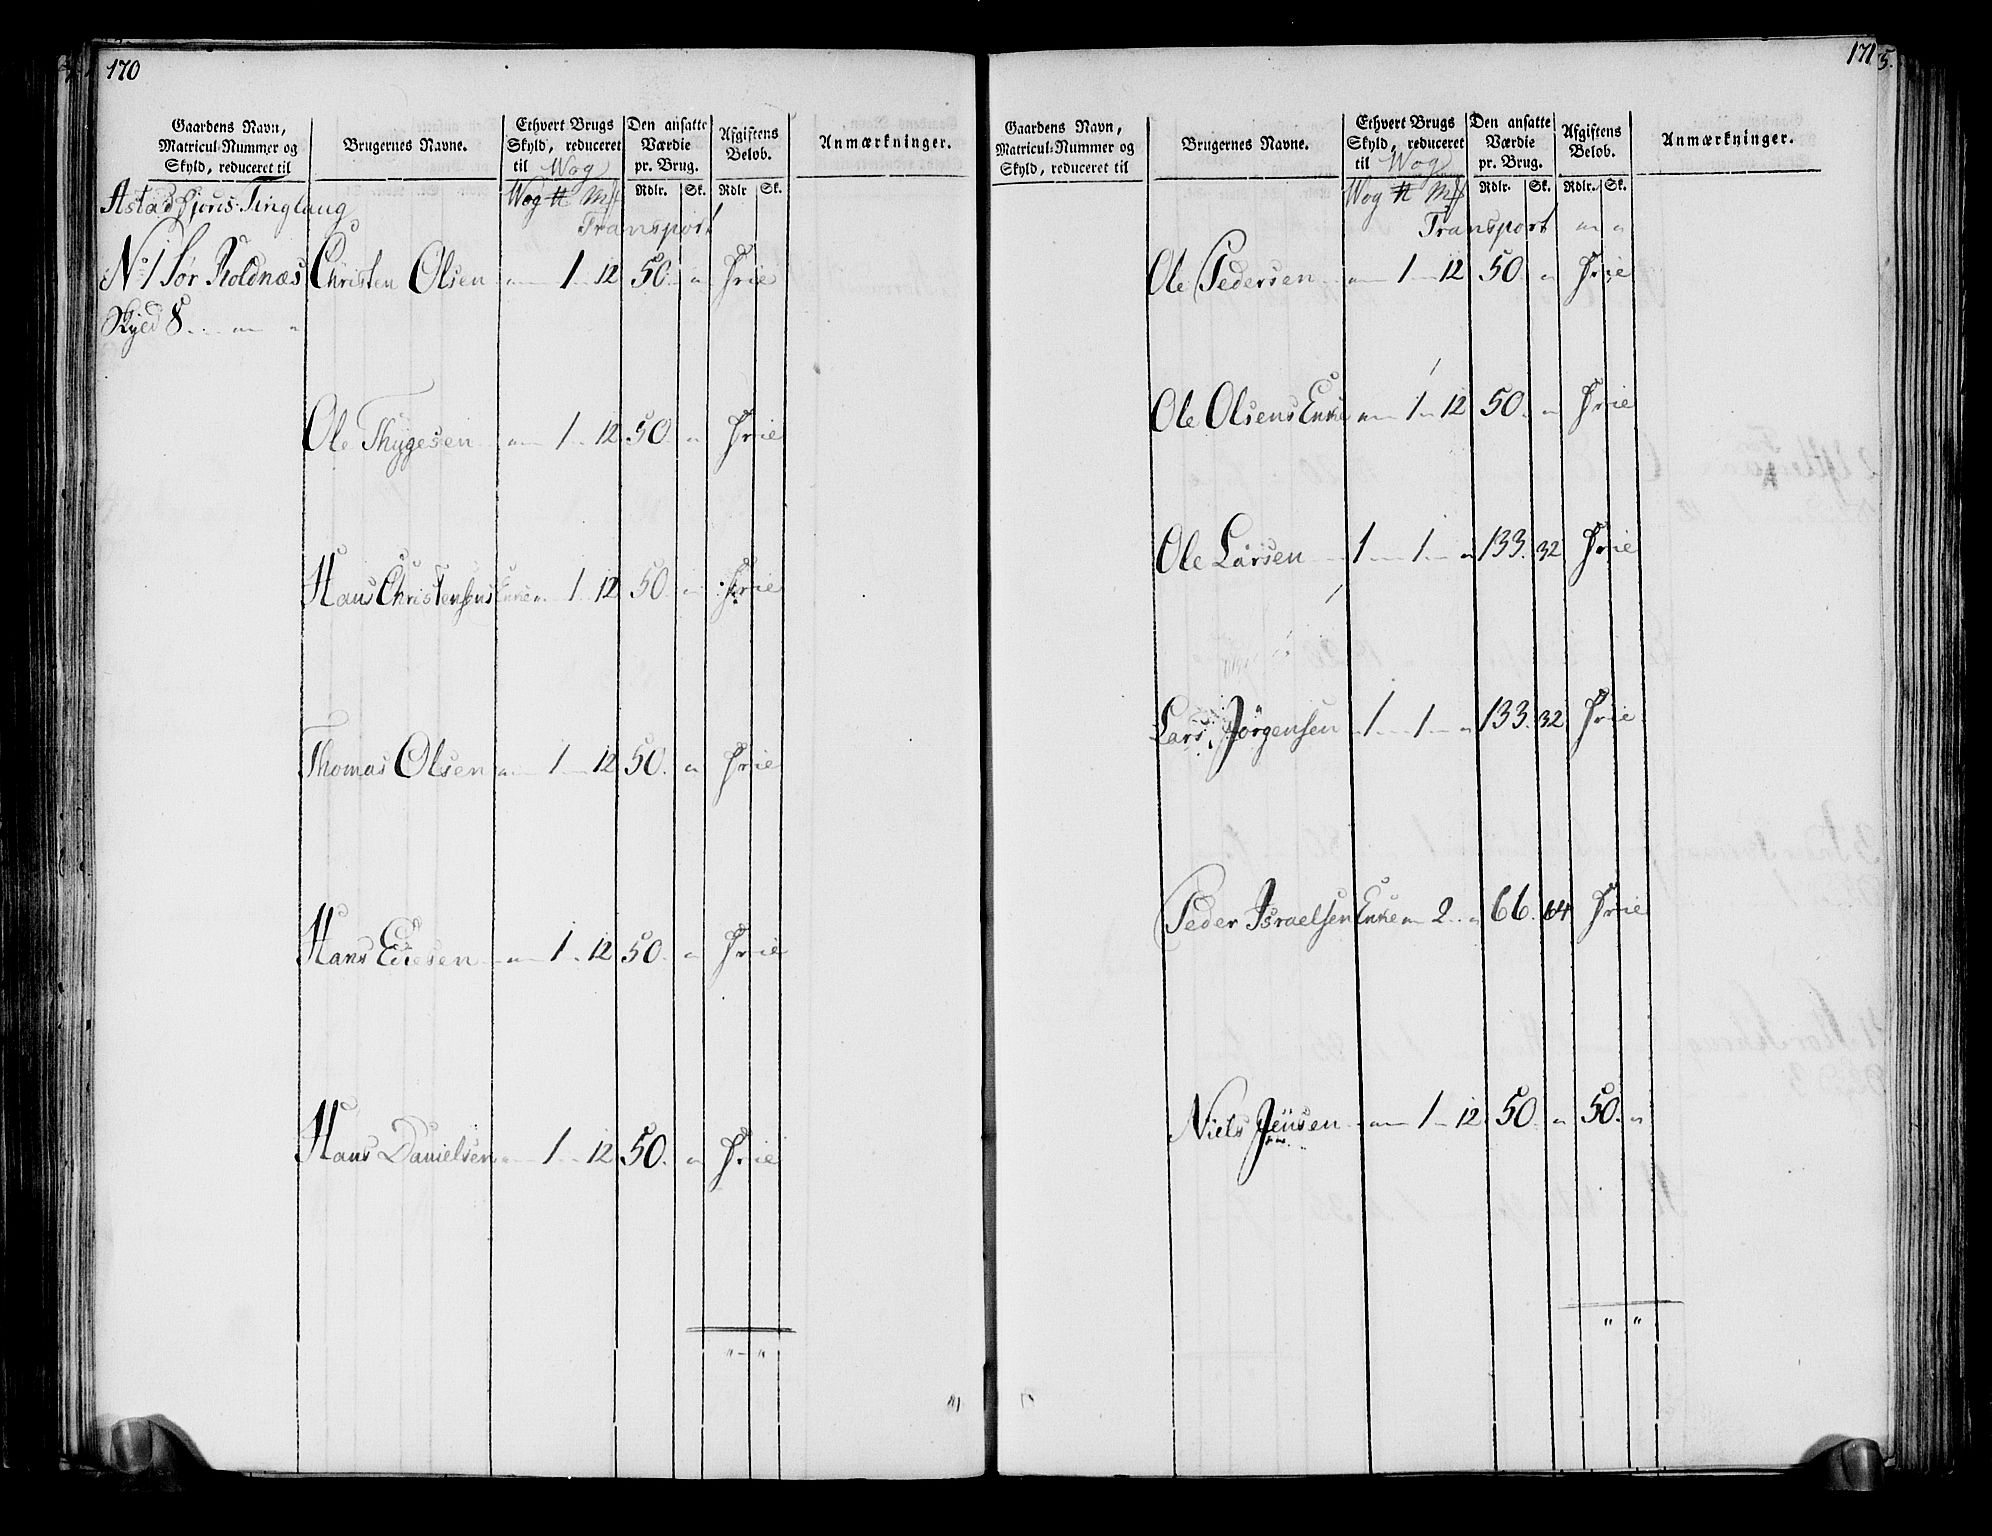 170
Gaardens Navn, Matricul-Nummer og Skyld, reduceret til
Brugernes Navne.
Ethvert Brugs Skyld, reduceret til Wog
Den ansatte Værdie pr. Brug.
Afgiftens Beløb.
Anmærkninger.
Wog ℔ Mk Rdlr. Sk. Rdlr Sk.
Astadfjoris Tinglaug
Transport
No 1 Sør Roldnæs Christen Olsen " 1 " 12 50. " frie
Skyld 8 " "
Ole Thygesen " 1 " 12 50. " frie
Hans Christensens Enke " 1 12 50. " frie
Thomas Olsen " 1 " 12 50. " frie
Hans Ediesen " 1 " 12 50. " frie
Hans Danielsen " 1 " 12 50. " frie
" "
171
5.
Gaardens Navn, Matricul-Nummer og Skyld, reduceret til
Brugernes Navne.
Ethvert Brugs Skyld, reduceret til Wog
Den ansatte Værdie pr. Brug.
Afgiftens Beløb.
Anmærkninger.
Wog ℔ Mk Rdlr. Sk. Rdlr. Sk.
Transport " "
Ole Pedersen " 1 " 12 50. " frie
Ole Olsens Enke " 1 " 12 50. " frie
Ole Larsen 1 " 1 " " 133. 32 frie
Lars Jörgensen 1 " 1 " " 133. 32 frie
Peder Israelsen Enke " 2 " " 66. 64 frie
Niels Jensen " 1 " 12 50. " 50. "
" "